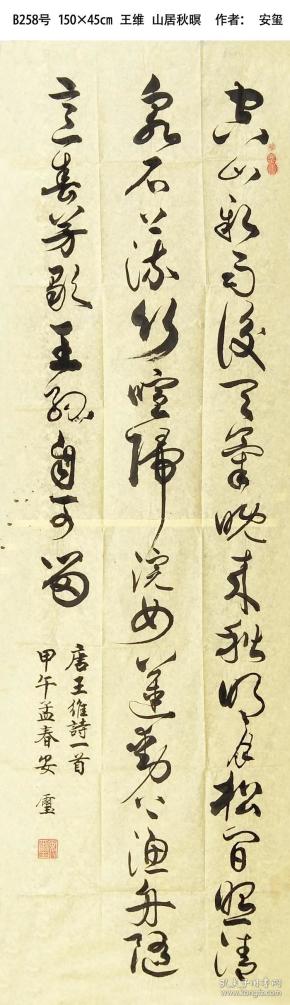 B258号 150×45cm 王维 山居秋暝 作者： 安玺
空山新雨後天氣晚来秋明月松間照清
泉石上流竹喧歸浣女蓮動下漁舟隨
意春芳歇王孫自可留
唐王維詩一首
甲午孟春安璽